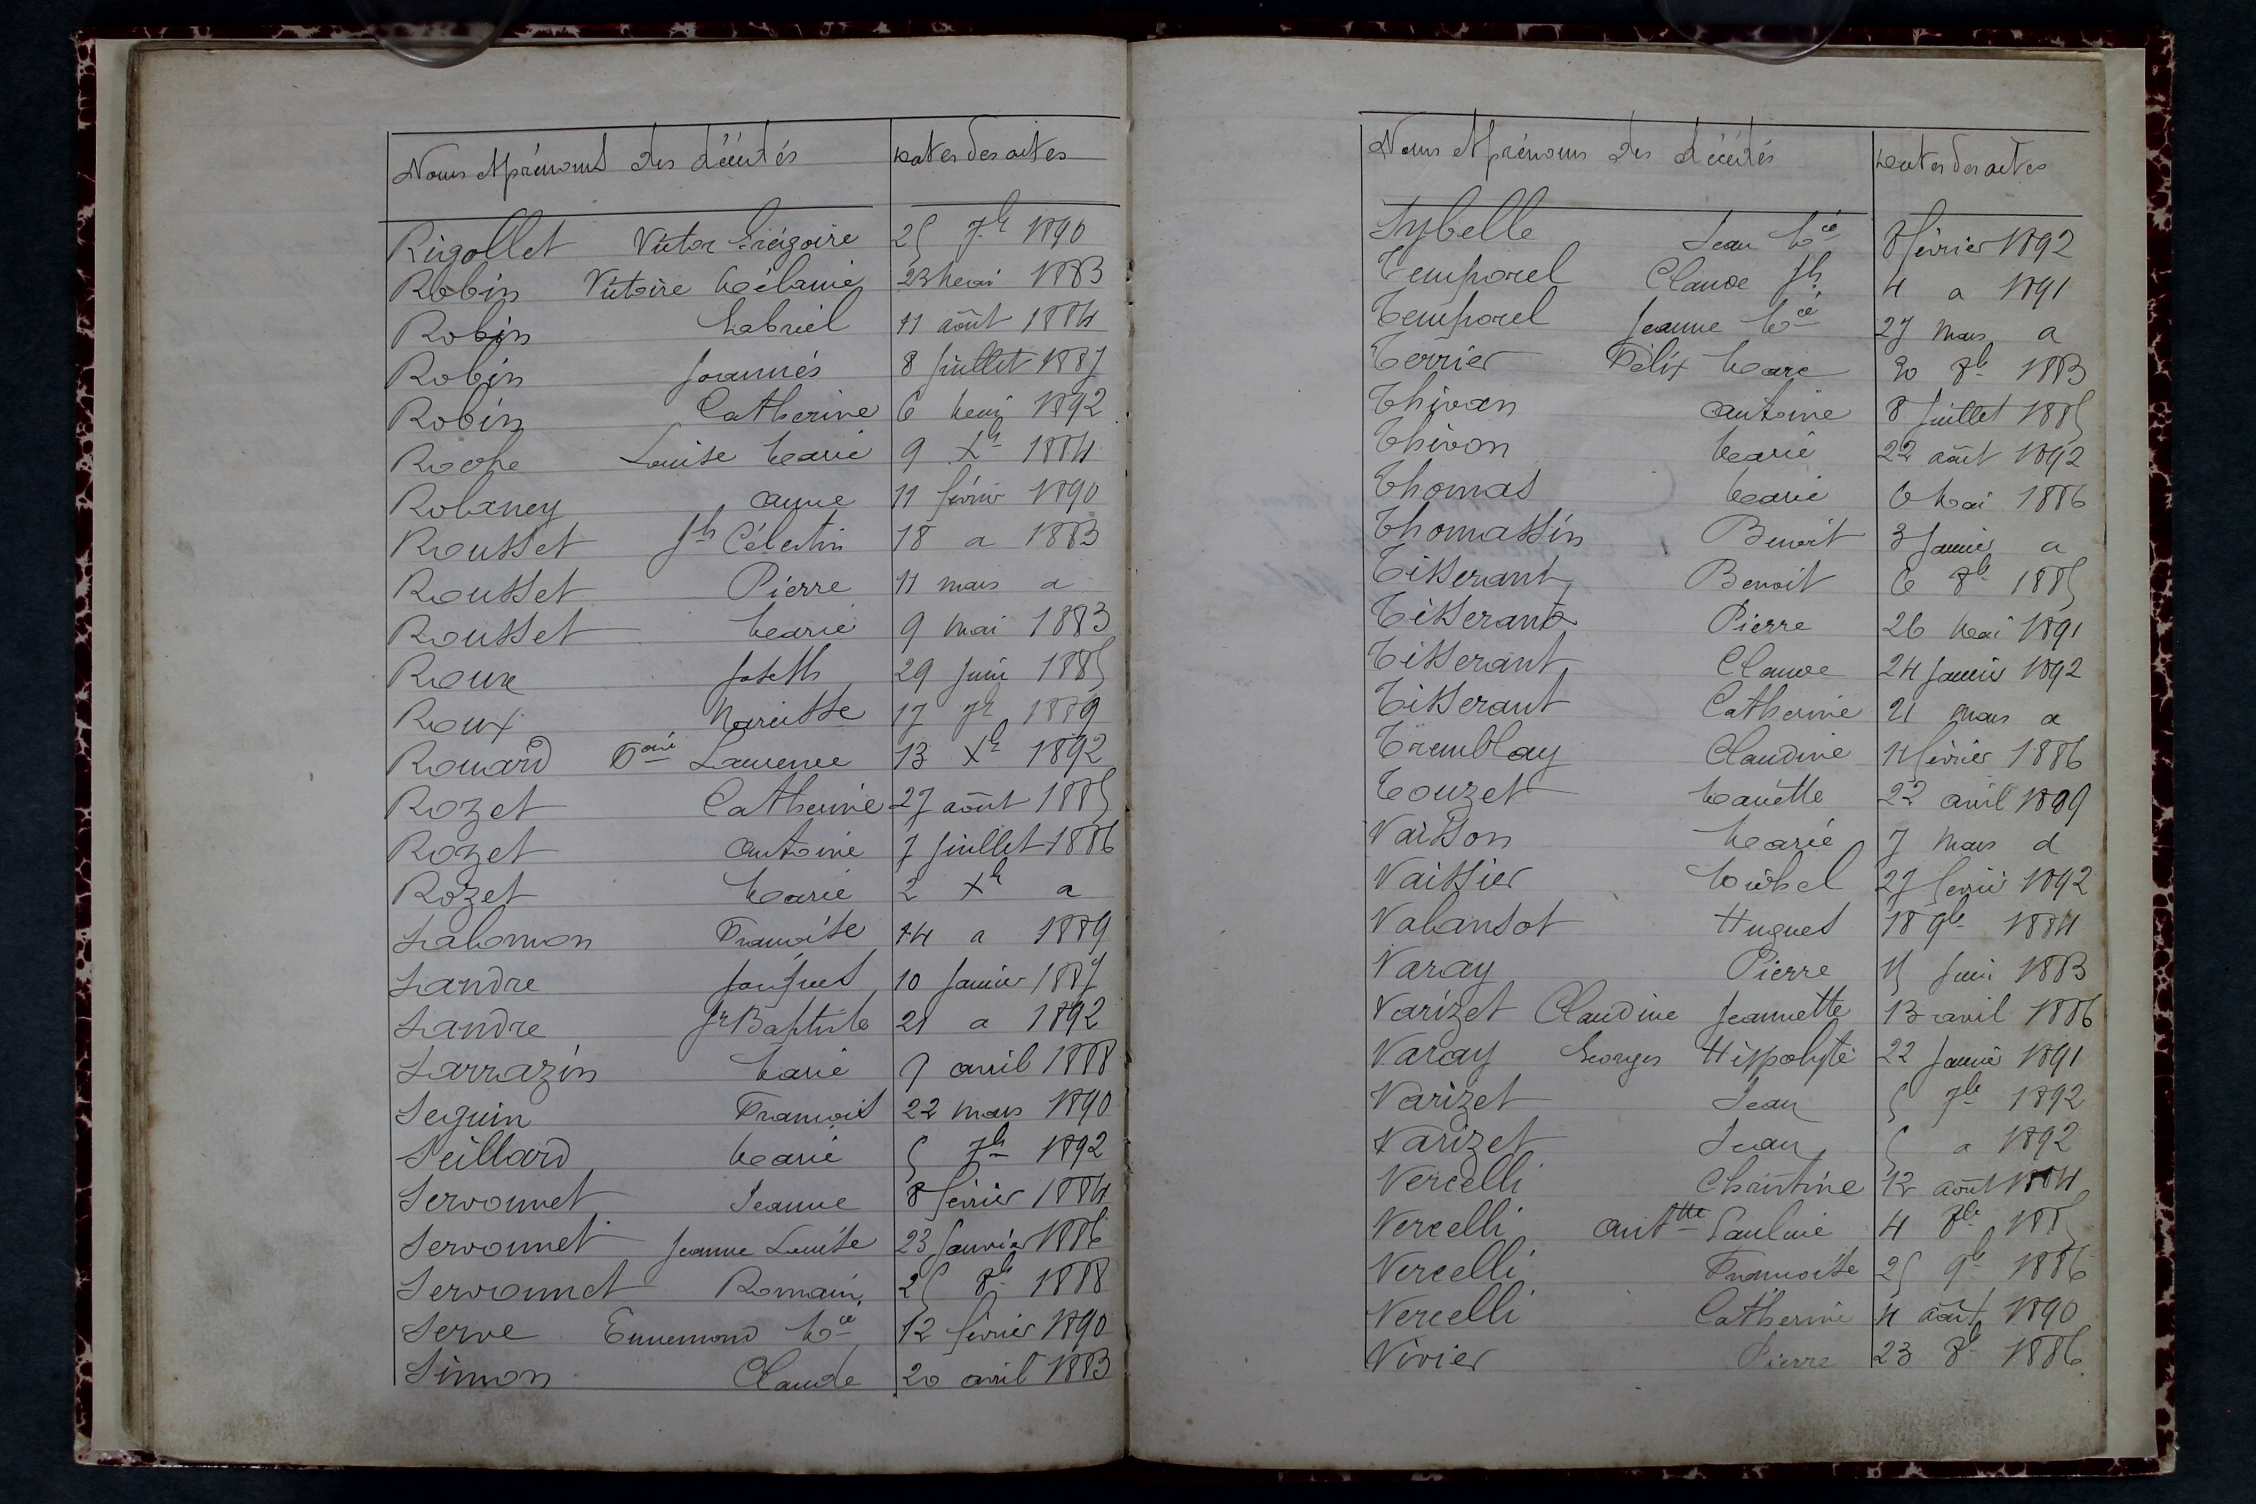 Noms et prénoms des décédés Dates des actes
Rigollet Victor Grégoire 25 7b 1890
Robin Victoire Mélanie 23 Mai 1883
Robin Gabriel 11 août 1884
Robin Joannès 8 Juillet 1887
Robin Catherine 6 Mai 1892
Roche Louise Marie 9 Xb 1884
Rolancy anne 11 février 1890
Rousset Jh Célestin 18 a 1883
Rousset Pierre 11 mars a
Rousset Marie 9 mai 1883
Roux Joseph 29 Juin 1885
Roux Narcisse 17 7b 1889
Rouard Laurence 13 Xb 1892
Rozet Catherine 27 août 1885
Rozet antoine 7 Juillet 1886
Rozet Marie 2 Xb a
Salomon Françoise 14 a 1889
Sandre Jacques 10 Janvier 1887
Sandre Jn Baptiste 21 a 1892
Sarrazin Marie 7 avril 1888
Seguin François 22 mars 1890
Seillard Marie 5 7b 1892
Servonnet Jeanne 8 février 1884
Servonnet Jeanne Louise 23 Janvier 1886
Servonnet Romain 25 8b 1888
Serve Ennemond Mie 12 février 1890
Simon Claude 20 avril 1883
Noms et prénoms des décédés Dates des actes
Sybelle Jean Mie 8 février 1892
Temporel Claude Jh 4 a 1891
Temporel Jeanne Mie 27 Mars a
Terrier Félix Marc 30 8b 1883
Thivan antoine 8 Juillet 1885
Thivon Marie 22 août 1892
Thomas Marie 6 Mai 1886
Thomassin Benoit 3 Janvier a
Tisserant Benoit 6 8b 1885
Tisserant Pierre 26 Mai 1891
Tisserant Claude 24 Janvier 1892
Tisserant Catherine 21 Mars a
Tremblay Claudine 4 février 1886
Touzet Mariette 22 avril 1889
Vaisson Marie 7 Mars d
Vaissier Michel 27 février 1892
Valansot Hugues 18 9b 1884
Varay Pierre 15 Juin 1883
Varizet Claudine Jeannette 13 avril 1886
Varay Georges Hippolyte 22 Janvier 1891
Varizet Jean 5 7b 1892
Varizet Jean 5 a 1892
Vercelli Christine 12 août 1884
Vercelli anttte Pauline 4 8b 1885
Vercelli Françoise 25 9b 1886
Vercelli Catherine 4 août 1890
Vivier Pierre 23 8b 1886